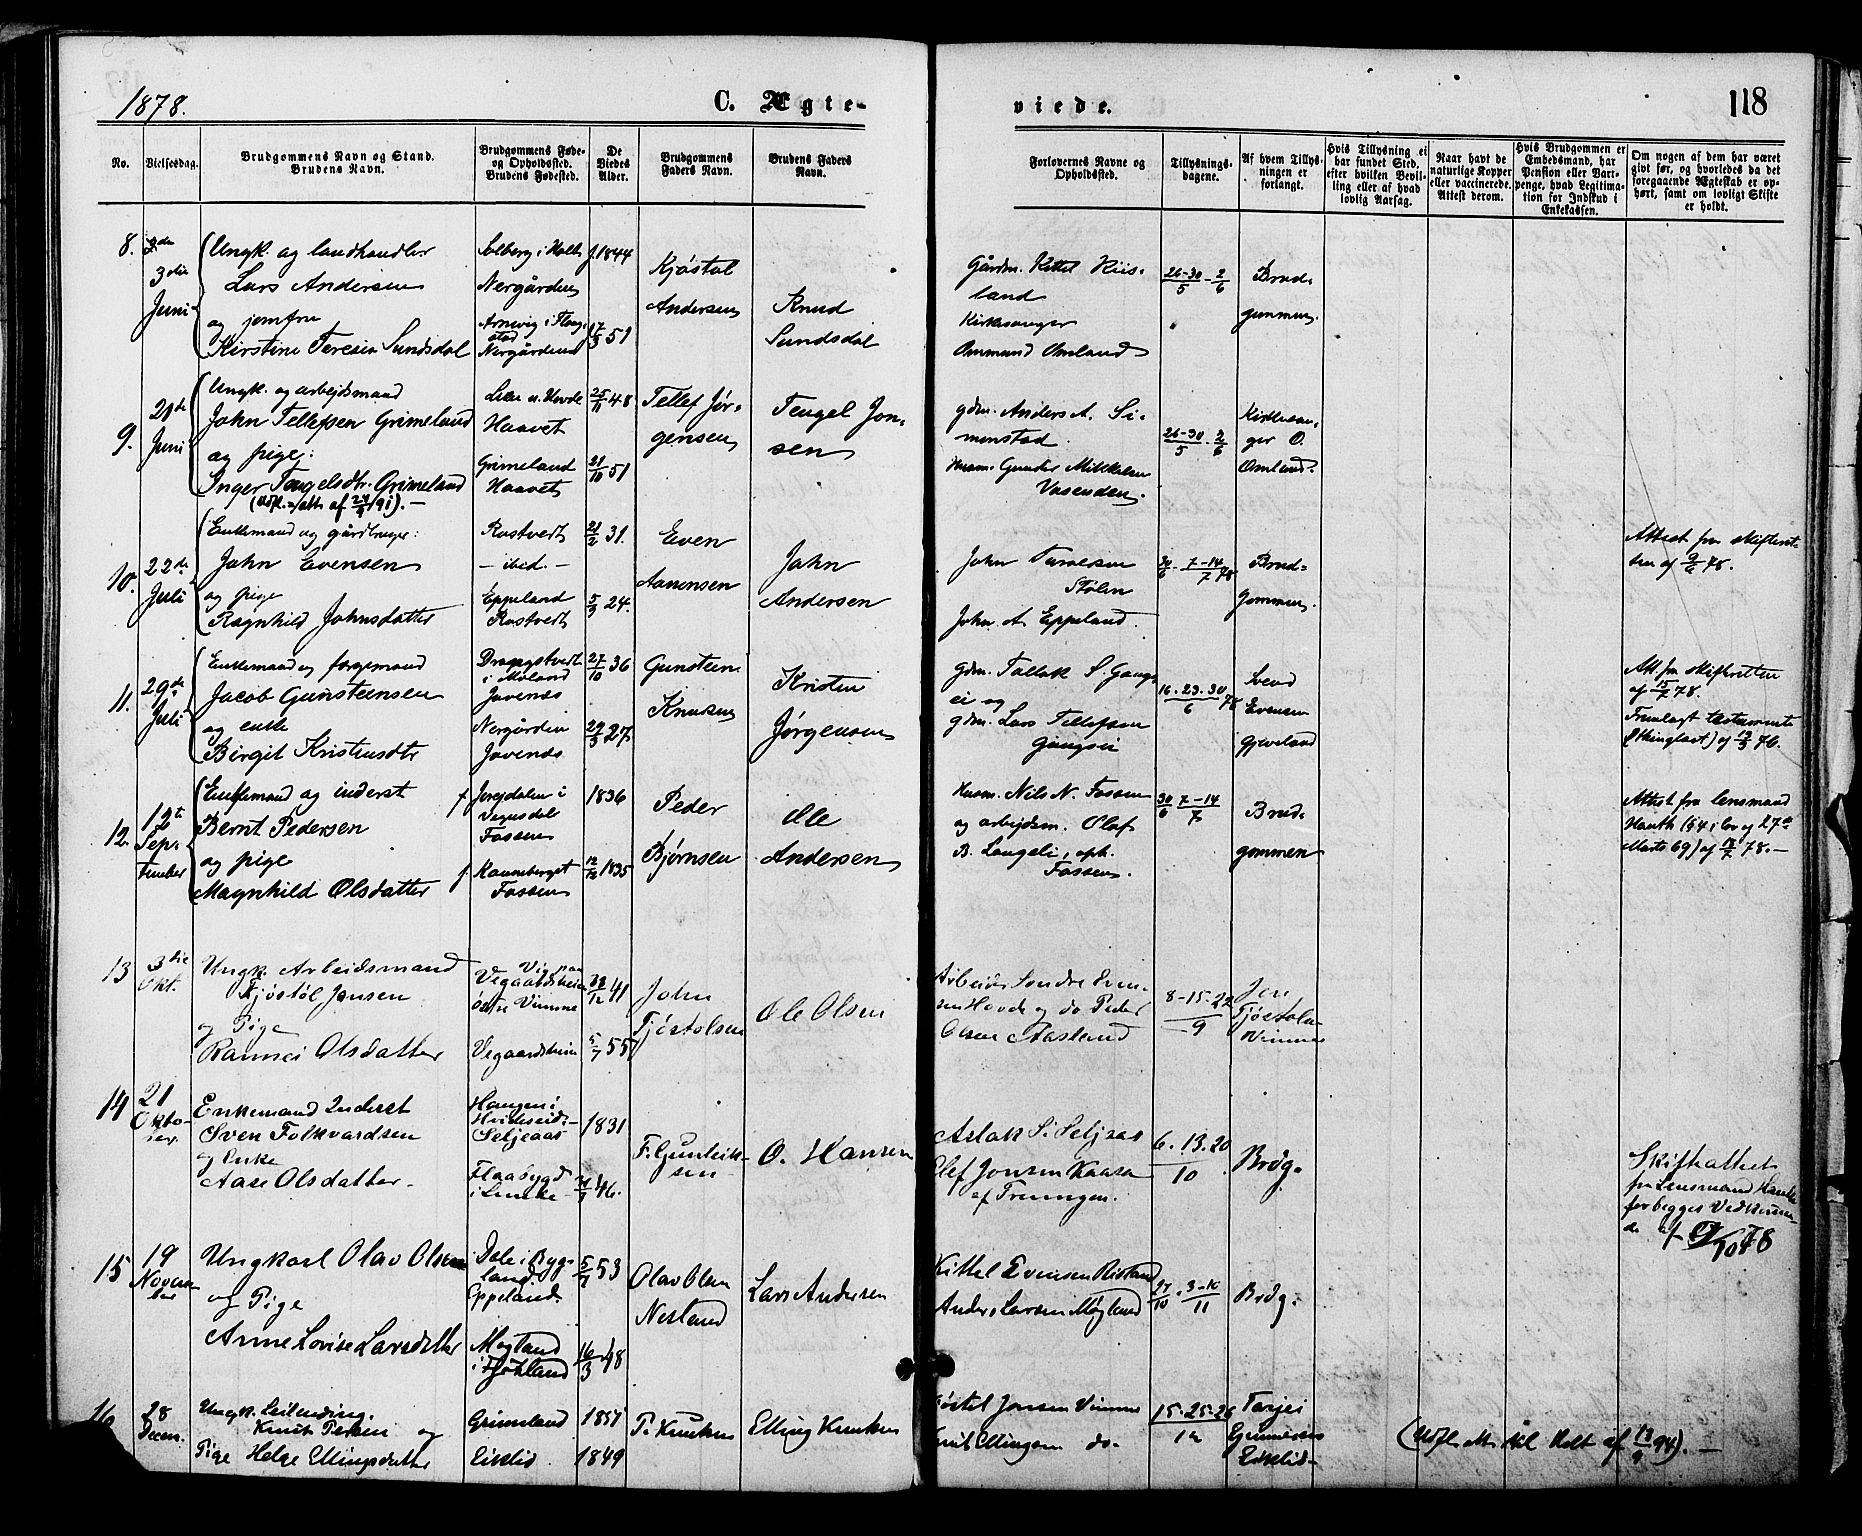 1878.
C. Ægte-
viede.
118
No.
Vielsesdag.
Brudgommens Navn og Stand.
Brudens Navn.
Brudgommens Føde-
og Opholdssted.
Brudens Fødested.
De
Viedes
Alder.
Brudgommens
Faders Navn.
Brudens Faders
Navn.
Forlovernes Navne og
Opholdssted.
Tillysnings-
dagene.
Af hvem Tillys-
ningen er
forlangt.
Hvis Tillysning ei
har fundet Sted,
efter hvilken Bevil-
ling eller af hvad
lovlig Aarsag.
Naar havt de
naturlige Kopper
eller vaccinerede.
Attest derom.
Hvis Brudgommen er
Embedsmand, har
Pension eller Vart-
penge, hvad Legitima-
tion for Indskud i
Enkekassen.
Om nogen af dem har været
givt før, og hvorledes da det
foregaaende Ægteskab er op-
hørt, samt om lovligt Skifte
er holdt.
8.
3die
Juni
Ungk. og landhandler
Lars Andersen
og jomfru
Kirstine Teresia Sundsdal
Solberg i Holt
Nergården
Arnevig i Flog-
stad
Nergården
1844
17/3 51
Kjøstol
Andersen
Knud
Sundsdal
Gårdm. Kittel Riis-
land
Kirkesanger
Ommund Omland
26-30/5 - 2/6
Brud-
gommen.
9.
21de
Juni
Ungk. og arbejdsmand
John Tellefsen Grimeland
og pige:
Inger Tengelsdtr. Grimeland
(Udfl. att. af 24/9 91). —
Haavet
Grimeland
Haavet
25/11 48
21/10 51
Tellef Jør-
gensen
Tengel Jon-
sen
gdm. Anders A. Si-
monstad.
Husm. Gunder Mikkelsen
Vasenden.
26-30/5 . 2/6
Kirkesan-
ger O.
Omland.
10.
22de
Juli
Enkemand og gårdbruger:
John Evensen
og pige
Ragnhild Johnsdatter
Rostvedt
— ibid. —
Eppeland
Rostvedt
21/2 31.
5/3 24.
Even
Aanonsen
John
Andersen
John Taraldsen
Stølen
John A. Eppeland.
30/6 - 7-14/7 78
Brud-
gommen.
Attest fra skifteret-
ten af 9/6 78.
11.
29de
Juli
Enkemand og forgemand
Jacob Gunsteensen
og enke
Birgit Kristensdtr
i Moland
Jovenes
Nergården
Jovenes
27/10 36
29/3 27.
Gunsteen
Knudsen
Kristen
Jørgensen
gdm. Tallak S. Gangs-
ei og
gdm. Lars Tellefsen
Gangsei
16.23.30/6 78
Svend
Evensen
Gjeveland
Att. fra skifteretten
af 15/7 78.
Fremlagt testamente
(thinglæst) af 13/3 76.
12.
12te
Sep-
tember
Enkemand og inderst
Bernt Pedersen
og pige
Magnhild Olsdatter
f Jorejdalen i
Vegusdal
Fossen
f Kanneberget
Fossen
1836
12/12 1835
Peder
Bjørnsen
Ole
Andersen
Husm. Nils N. Fossen
og arbejdsm. Olaf
B. Longeli, oph.
Fossen.
30/6 7-14/7
Brud-
gommen
Attest fra lensmand
Hauth (§4 i lov af 27de
Marts 69) af 12/7 78. —
13
3die
Okt.
Ungk. Arbeidsmand
Tjøstøl Jonsen
og Pige
Rannei Olsdatter
Vegaardsheien
østre Vimme
Vegaardsheien
41
5/7 55
John
Tjøstolsen
Ole Olsen
Arbeider Sondre Sven-
sen Hovde og do Peder
Olsen Aasland
8-15-22/9
Jon
Tjøstolsen
Vimme
14
21
Okto-
ber.
Enkemand Inderst
Sven Folkvardsen
og Enke
Aase Olsdatter.
Haugen i
Hvideseid-
Seljeaas
Flaabygd
1831
46.
F. Gunleik-
sen
O. Hansen
Aslak S. Seljeaas
Olef Jonsen Kaasa
af Treungen.
6.13.20/10
Brdg.
Skifteattest
fra Lensmand Hauth
for begges Vedkommen-
de af 9/10 78
15
19
Novem-
ber
Ungkarl Olav Olsen
og Pige
Anne Lovise Larsdatter
Dale i Byg-
land
Eppeland.
Mogland
5/7 53
16/3 48
Olav Olsen
Nesland
Lars Andersen
Kittel Evensen Risland
Anders Larsen Møgland
27/10 . 3-10/11
Brdg.
16
28
Decem.
Ungk. Leilending.
Knut Persen og
Pige Helge Ellingsdatter
Grimeland
Eiklid.
1857
1849
P. Knutsen
Elling Knutsen
Jonsen Vimme
Knut Ellingsen do.
15-25-26/12
Tarjei
Gunnersen
Eiklid-
(Udfl. att. til Holt af 13/9 94). —